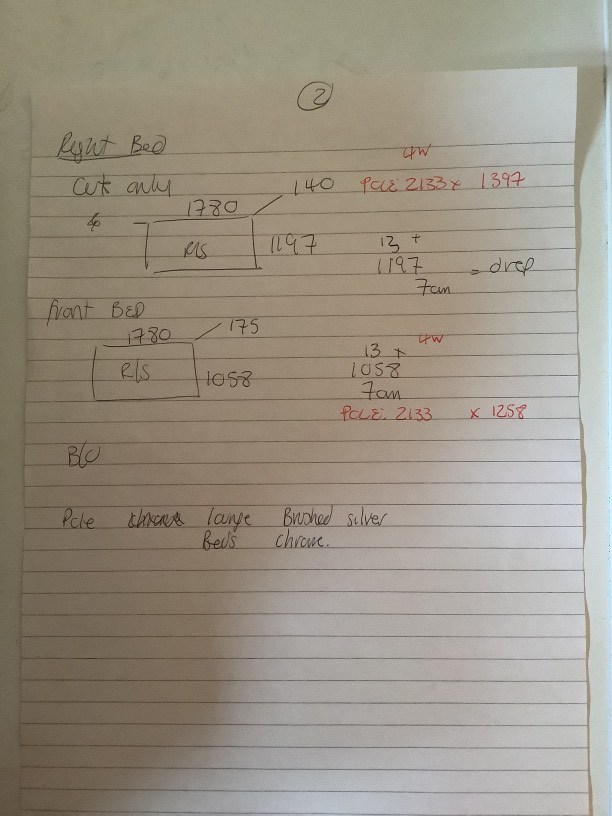 2
Right Bed
4W
Cut only 140 PCLE 2133 x 1397
1780
R/S 1197 13 +
1197 = drop
7cm
front BED
1780 175
4W
13 +
R/S 1058 1058
7cm
PCLE. 2133 x 1258
B/O
Pcle lounge Brushed silver
Beds chrome.